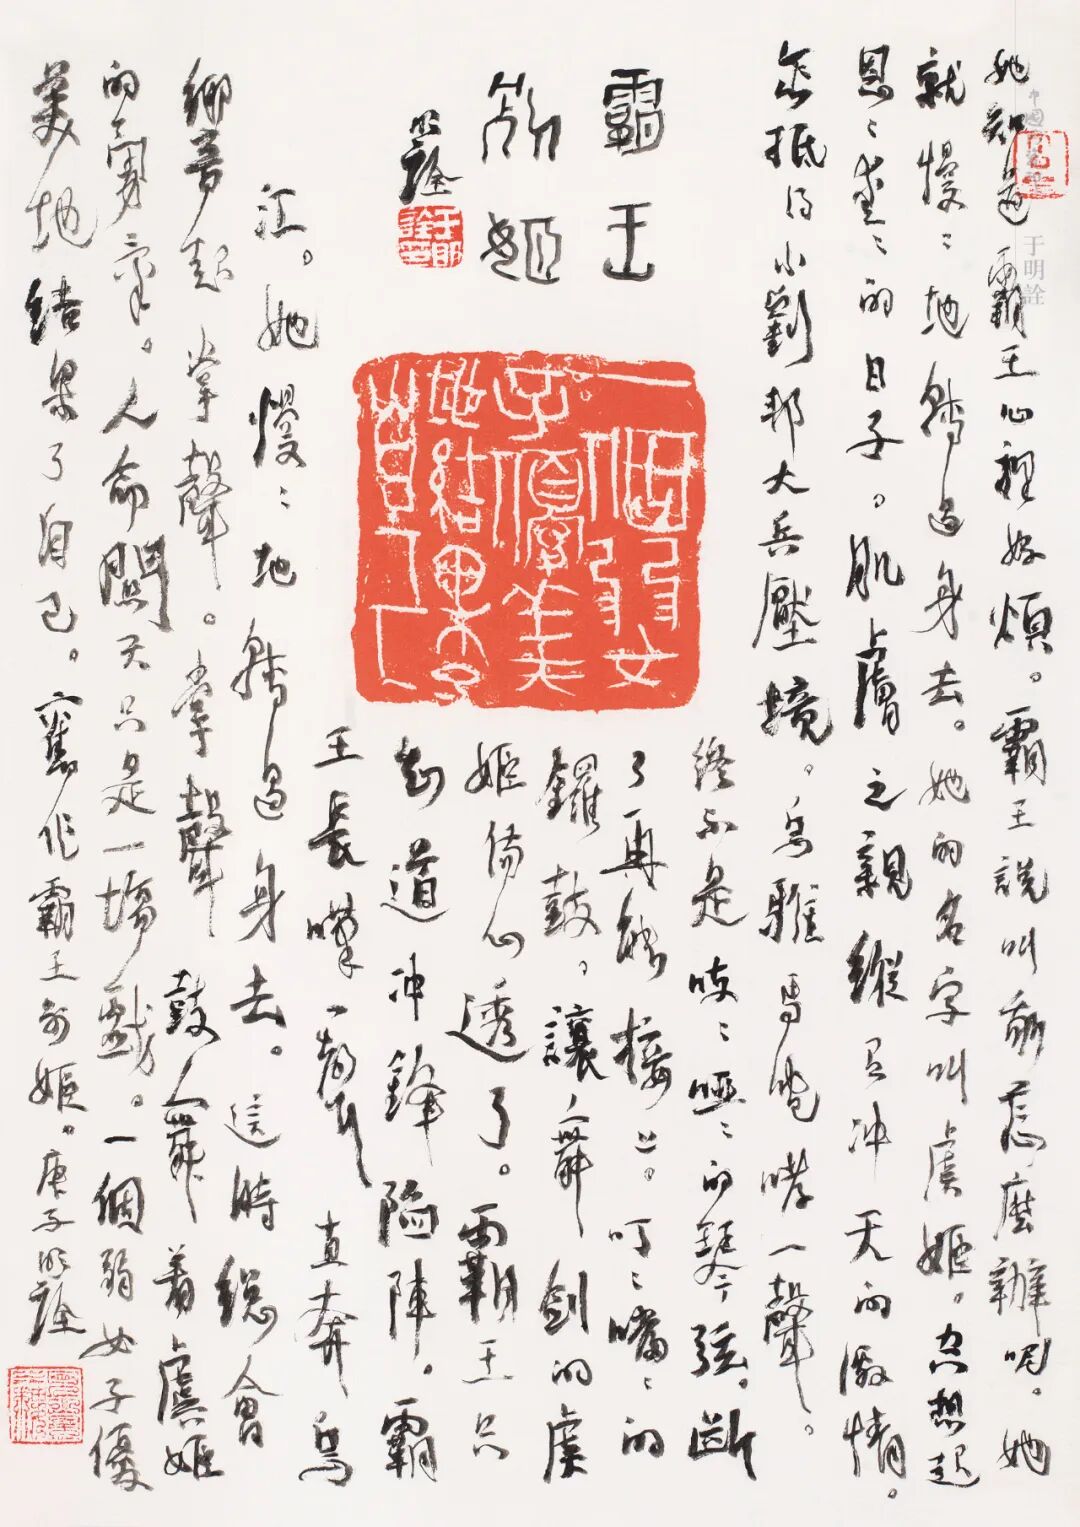 她知道霸王心裡好煩。霸王說叫怎麼辦呢。她
就慢〻地轉過身去。她的名字叫虞姬。想起
恩〻愛〻的日子。肌膚之親縱有冲天的激情。
怎抵得小劉邦大兵壓境。烏騅馬咆哮一聲。
終不是吱〻啞〻的琴弦。斷
了再能接上。叮〻噹〻的
鑼鼓。讓舞劍的虞
姬傷心透了。霸王只
知道冲鋒陷陣。霸
王長嘆一聲直奔烏
江。她慢〻地轉過身去。這時總會
響起掌聲。掌聲鼓舞着虞姬
的勇氣。人命關天只是一場戲。一個弱女子優
美地結果了自己。舊作霸王別姬。庚子明詮
霸王
別姬
明詮
一個弱女
子優美
地結果了
自己
于明詮